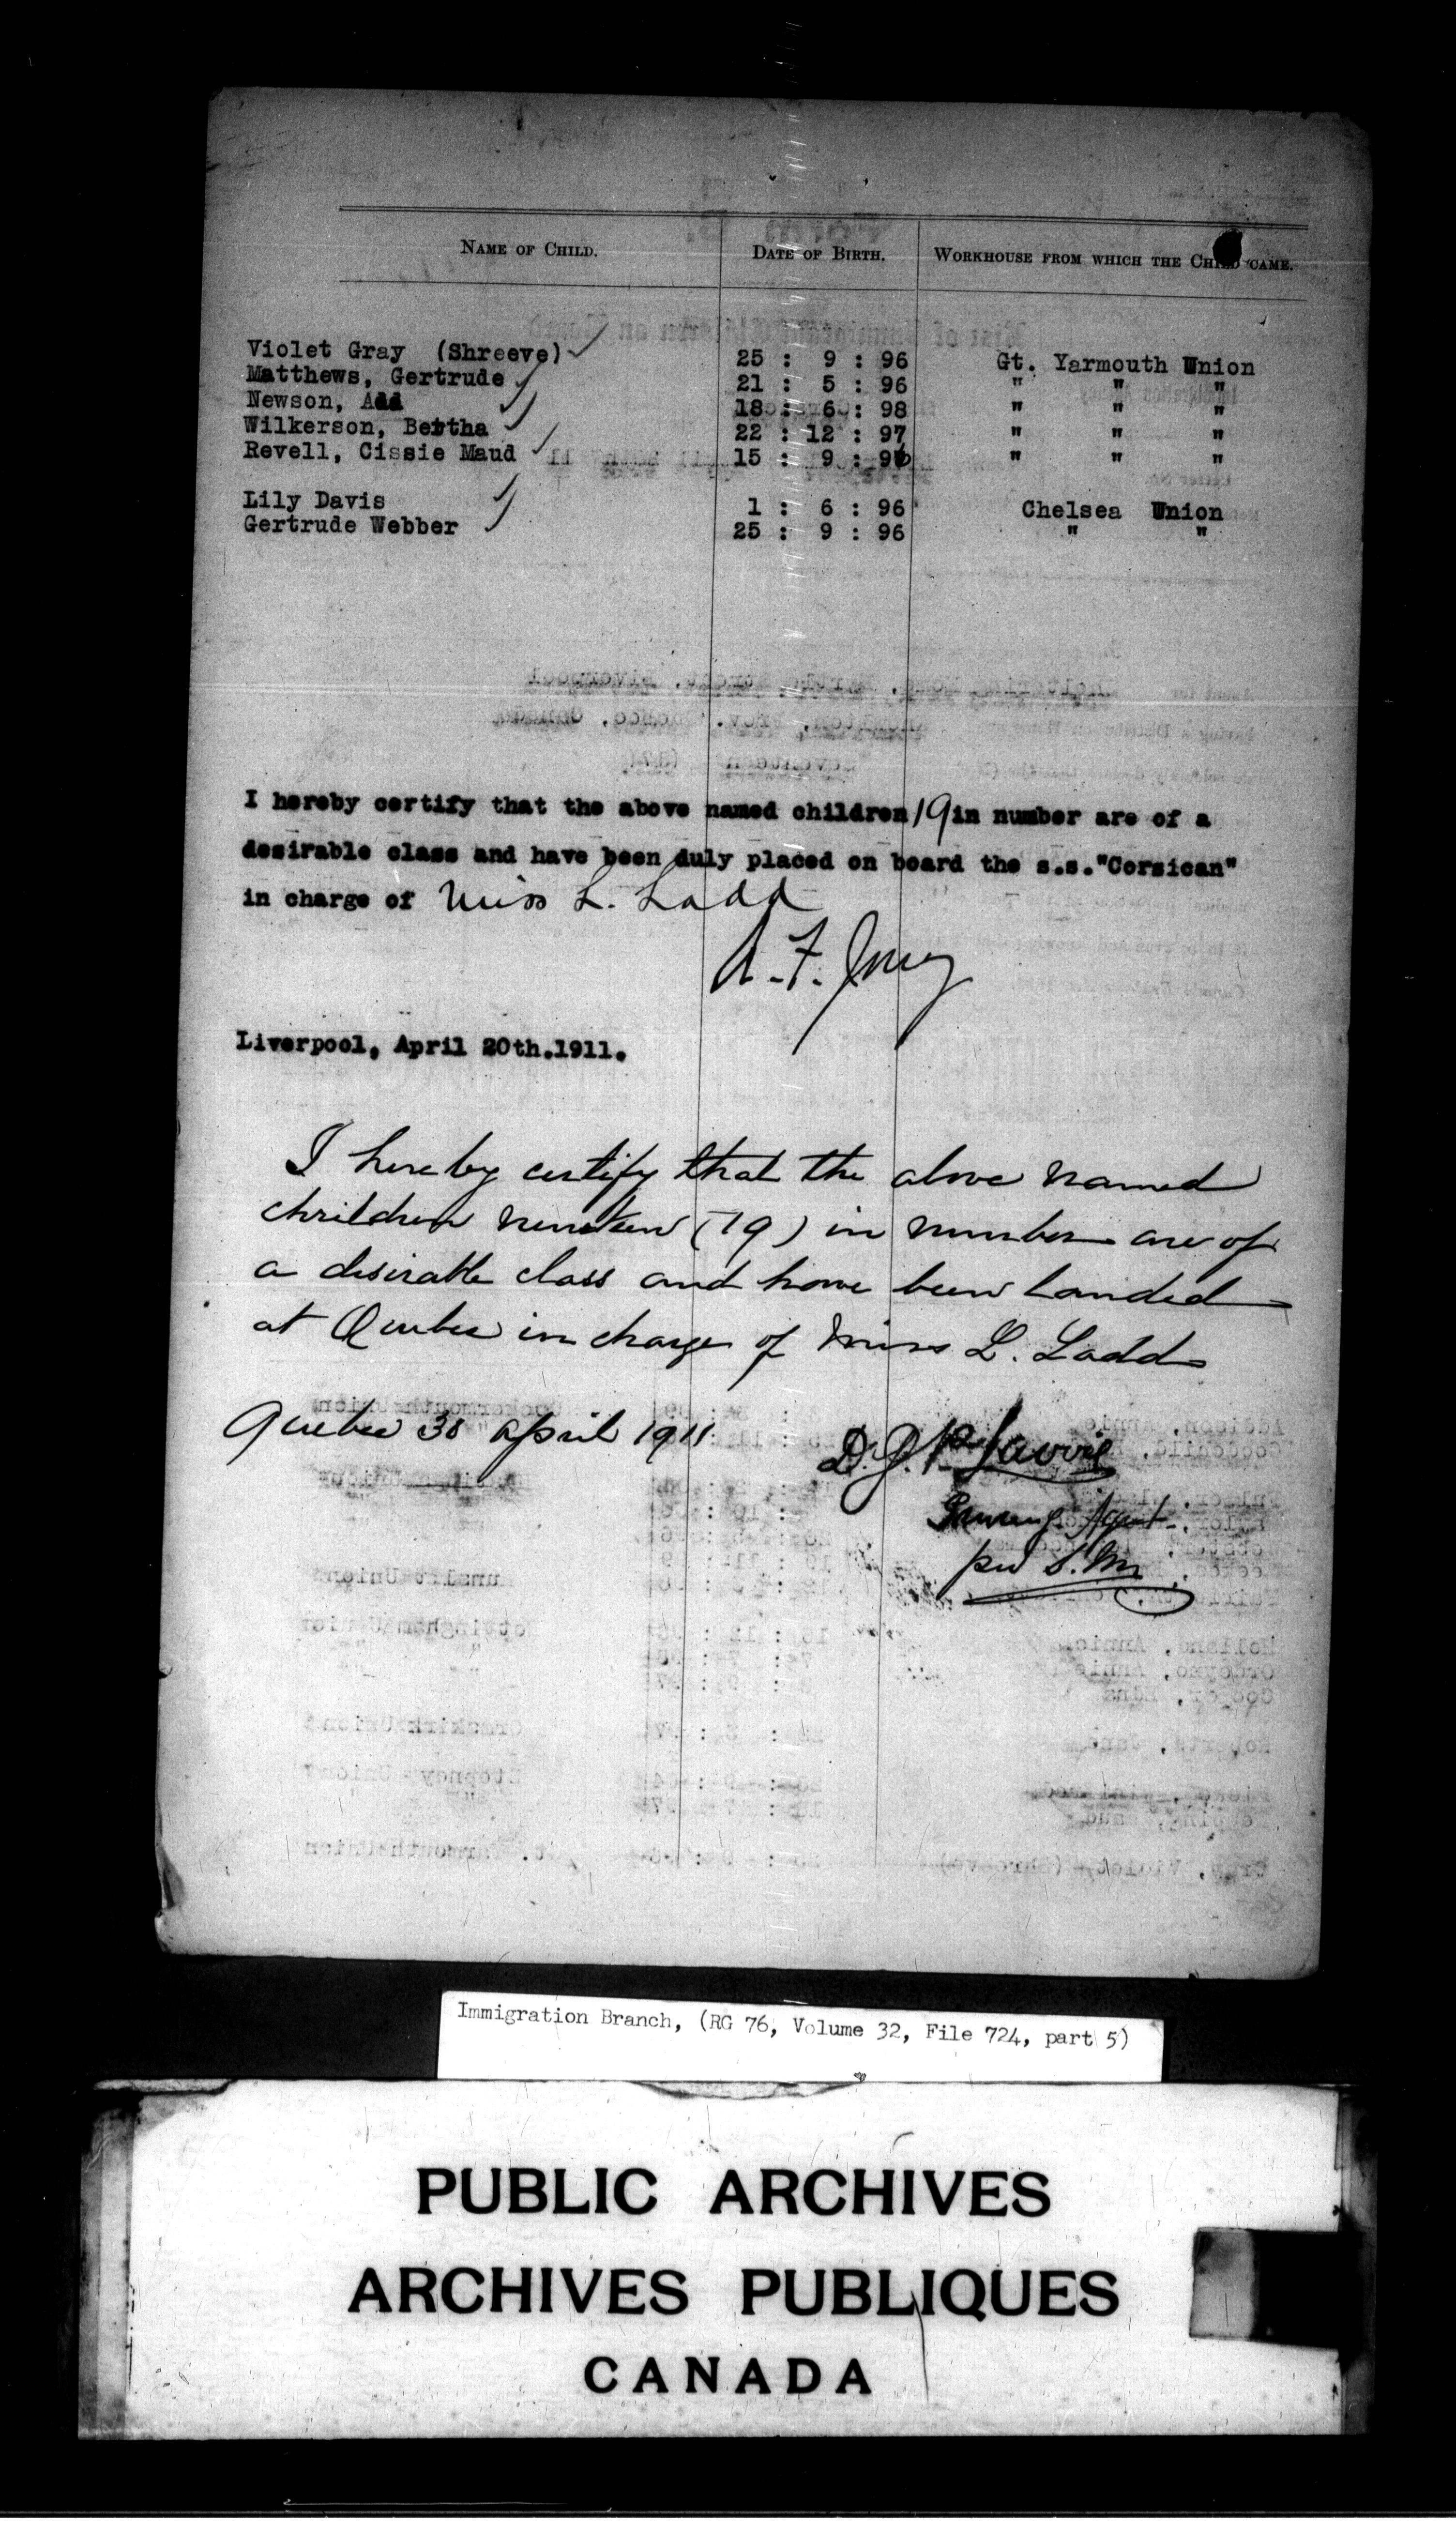 NAME OF CHILD. DATE OF BIRTH. WORKHOUSE FROM WHICH THE CHILD CAME.
Violet Gray (Shreeve) 25 : 9 : 96 Gt. Yarmouth Union
Matthews, Gertrude 21 : 5 : 96 " " "
Newson, Ada 18 : 6 : 98 " " "
Wilkerson, Bertha 22 : 12 : 97 " " "
Revell, Cissie Maud 15 : 9 : 96 " " "
Lily Davis 1 : 6 : 96 Chelsea Union
Gertrude Webber 25 : 9 : 96 " "
I hereby certify that the above named children 19 in number are of a
desirable class and have been duly placed on board the s.s."Corsican"
in charge of Miss L. Ladd
A. F.
Liverpool, April 20th.1911.
I hereby certify that the above named
children nineteen (19) in number are of
a desirable class and have been landed
at Quebec in charge of Miss L. Ladd
Quebec 30 April 1911
Agent
per S.M.
Immigration Branch, (RG 76, Volume 32, File 724, part 5)
PUBLIC ARCHIVES
ARCHIVES PUBLIQUES
CANADA